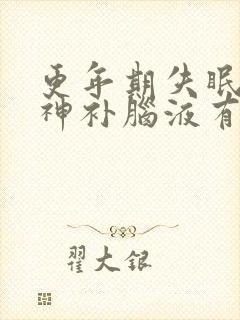 更年期失眠
神补腦液有
翟大银